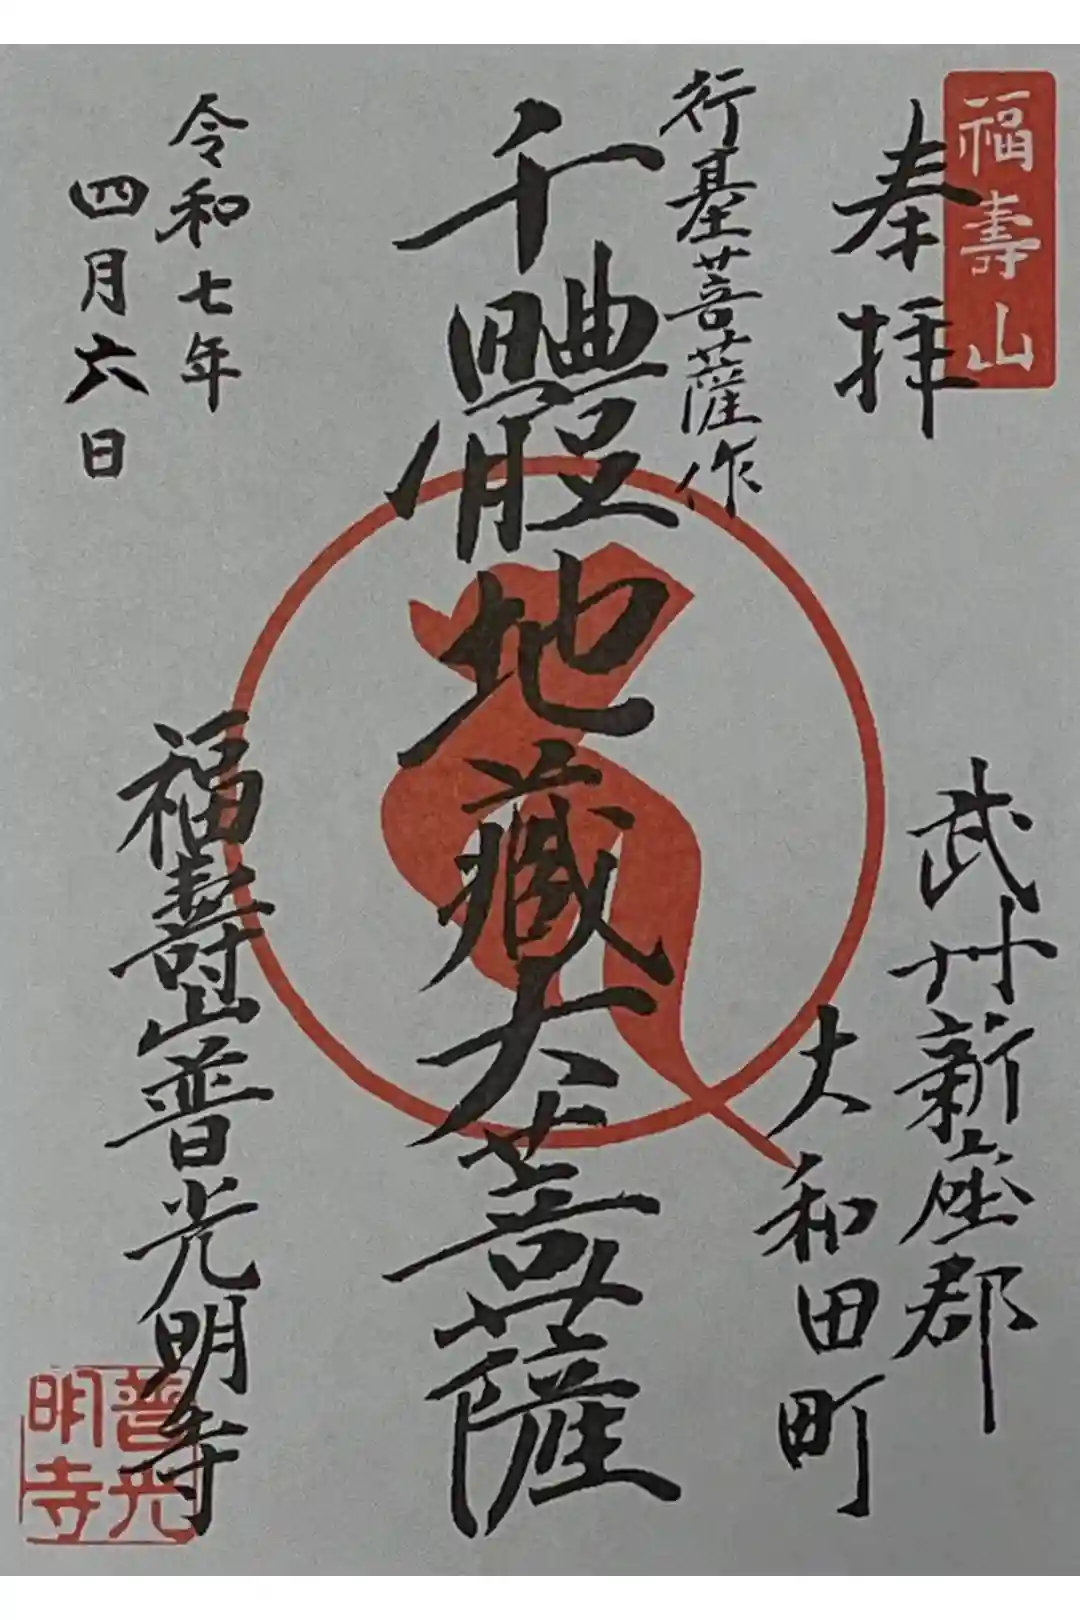 福壽山
奉拝
武州新座郡
大和田町
行基菩薩作
千體地藏大菩薩
令和七年
四月六日
福壽山普光明寺
普光
明寺